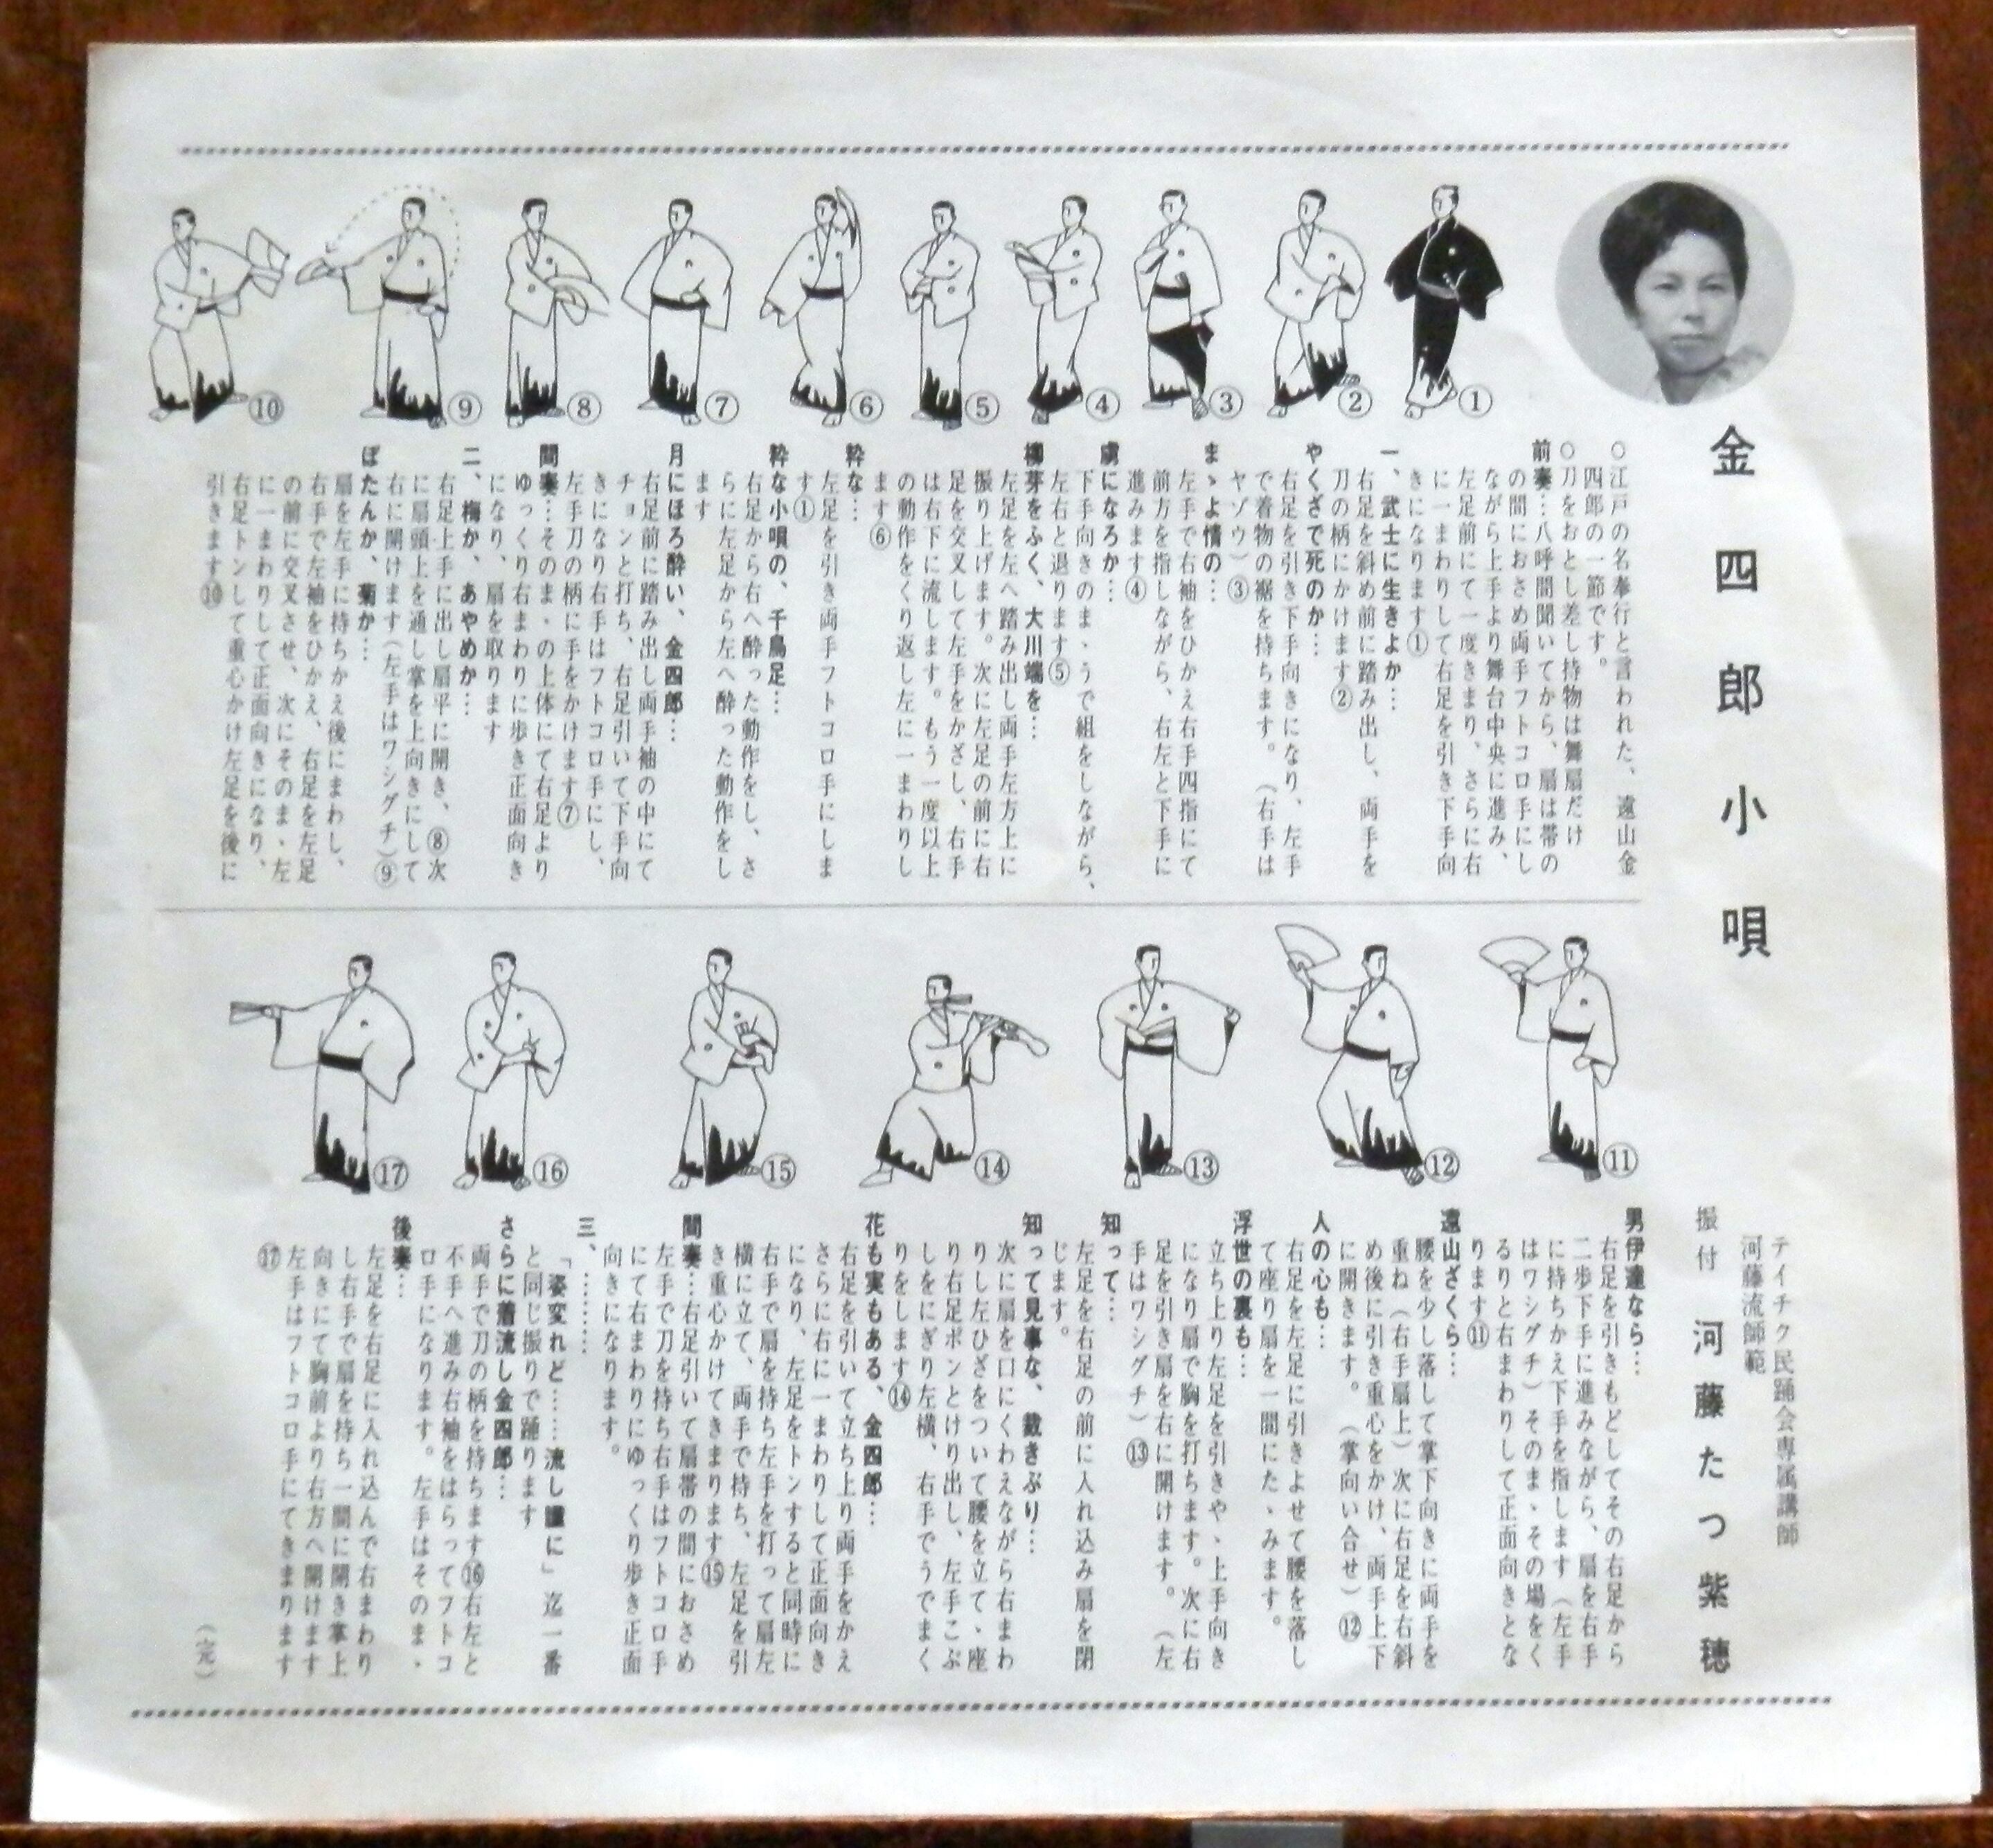 金四郎小唄
テイチク民踊会専属講師
河藤流師範
振付 河藤たつ紫穂
①
②
③
④
⑤
⑥
⑦
⑧
⑨
⑩
○江戸の名奉行と言われた、遠山金
四郎の一節です。
○刀をおとし差し持物は舞扇だけ
前奏…八呼間聞いてから、扇は帯の
の間におさめ両手フトコロ手にし
ながら上手より舞台中央に進み、
左足前にて一度きまり、さらに右
に一まわりして右足を引き下手向
きになります①
一、武士に生きよか…
右足を斜め前に踏み出し、両手を
刀の柄にかけます②
やくざで死のか…
右足を引き下手向きになり、左手
で着物の裾を持ちます。（右手は
ヤゾウ）③
まゝよ情の…
左手で右袖をひかえ右手四指にて
前方を指しながら、右左と下手に
進みます④
虜になろか…
下手向きのまゝうで組をしながら、
左右と退ります⑤
柳芽をふく、大川端を…
左足を左へ踏み出し両手左方上に
振り上げます。次に左足の前に右
足を交叉して左手をかざし、右手
は右下に流します。もう一度以上
の動作をくり返し左に一まわりし
ます⑥
粋な…
左足を引き両手フトコロ手にしま
す①
粋な小唄の、千鳥足…
右足から右へ酔った動作をし、さ
らに左足から左へ酔った動作をし
ます
月にほろ酔い、金四郎…
右足前に踏み出し両手袖の中にて
チョンと打ち、右足引いて下手向
きになり右手はフトコロ手にし、
左手刀の柄に手をかけます⑦
間奏…そのまゝの上体にて右足より
ゆっくり右まわりに歩き正面向き
になり、扇を取ります
二、梅か、あやめか…
右足上手に出し扇平に開き、⑧次
に扇頭上を通し掌を上向きにして
右に開けます（左手はワシグチ）⑨
ぼたんか、菊か…
扇を左手に持ちかえ後にまわし、
右手で左袖をひかえ、右足を左足
の前に交叉させ、次にそのまゝ左
に一まわりして正面向きになり、
右足トンして重心かけ左足を後に
引きます⑩
⑪
⑫
⑬
⑭
⑮
⑯
⑰
男伊達なら…
右足を引きもどしてその右足から
二歩下手に進みながら、扇を右手
に持ちかえ下手を指します（左手
はワシグチ）そのまゝその場をく
るりと右まわりして正面向きとな
ります⑪
遠山ざくら…
腰を少し落して掌下向きに両手を
重ね（右手扇上）次に右足を右斜
め後に引き重心をかけ、両手上下
に開きます。（掌向い合せ）⑫
人の心も…
右足を左足に引きよせて腰を落し
て座り扇を一間にたゝみます。
浮世の裏も…
立ち上り左足を引きやゝ上手向き
になり扇で胸を打ちます。次に右
足を引き扇を右に開けます。（左
手はワシグチ）⑬
知って…
左足を右足の前に入れ込み扇を閉
じます。
知って見事な、裁きぶり…
次に扇を口にくわえながら右まわ
りし左ひざをついて腰を立てゝ座
り右足ポンとけり出し、左手こぶ
しをにぎり左横、右手でうでまく
りをします⑭
花も実もある、金四郎…
右足を引いて立ち上り両手をかえ
さらに右に一まわりして正面向き
になり、左足をトンすると同時に
右手で扇を持ち左手を打って扇左
横に立て、両手で持ち、左足を引
き重心かけてきまります⑮
間奏…右足引いて扇帯の間におさめ
左手で刀を持ち右手はフトコロ手
にて右まわりにゆっくり歩き正面
向きになります。
三、………
「姿変れど……流し謹に」迄一番
と同じ振りで踊ります
さらに着流し金四郎…
両手で刀の柄を持ちます⑯右左と
不手へ進み右袖をはらってフトコ
ロ手になります。左手はそのまゝ
後奏…
左足を右足に入れ込んで右まわり
し右手で扇を持ち一間に開き掌上
向きにて胸前より右方へ開けます
左手はフトコロ手にてきまります
⑰
（完）